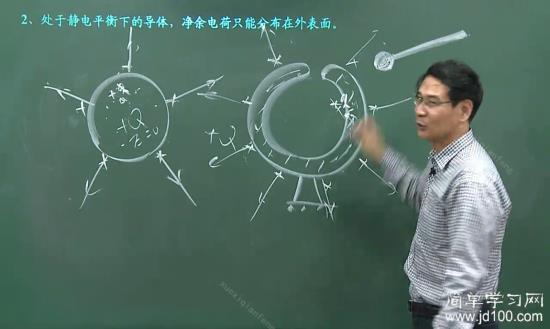 2、处于静电平衡下的导体，净余电荷只能分布在外表面。
+Q
+Q
简单学习网
www.jd100.com